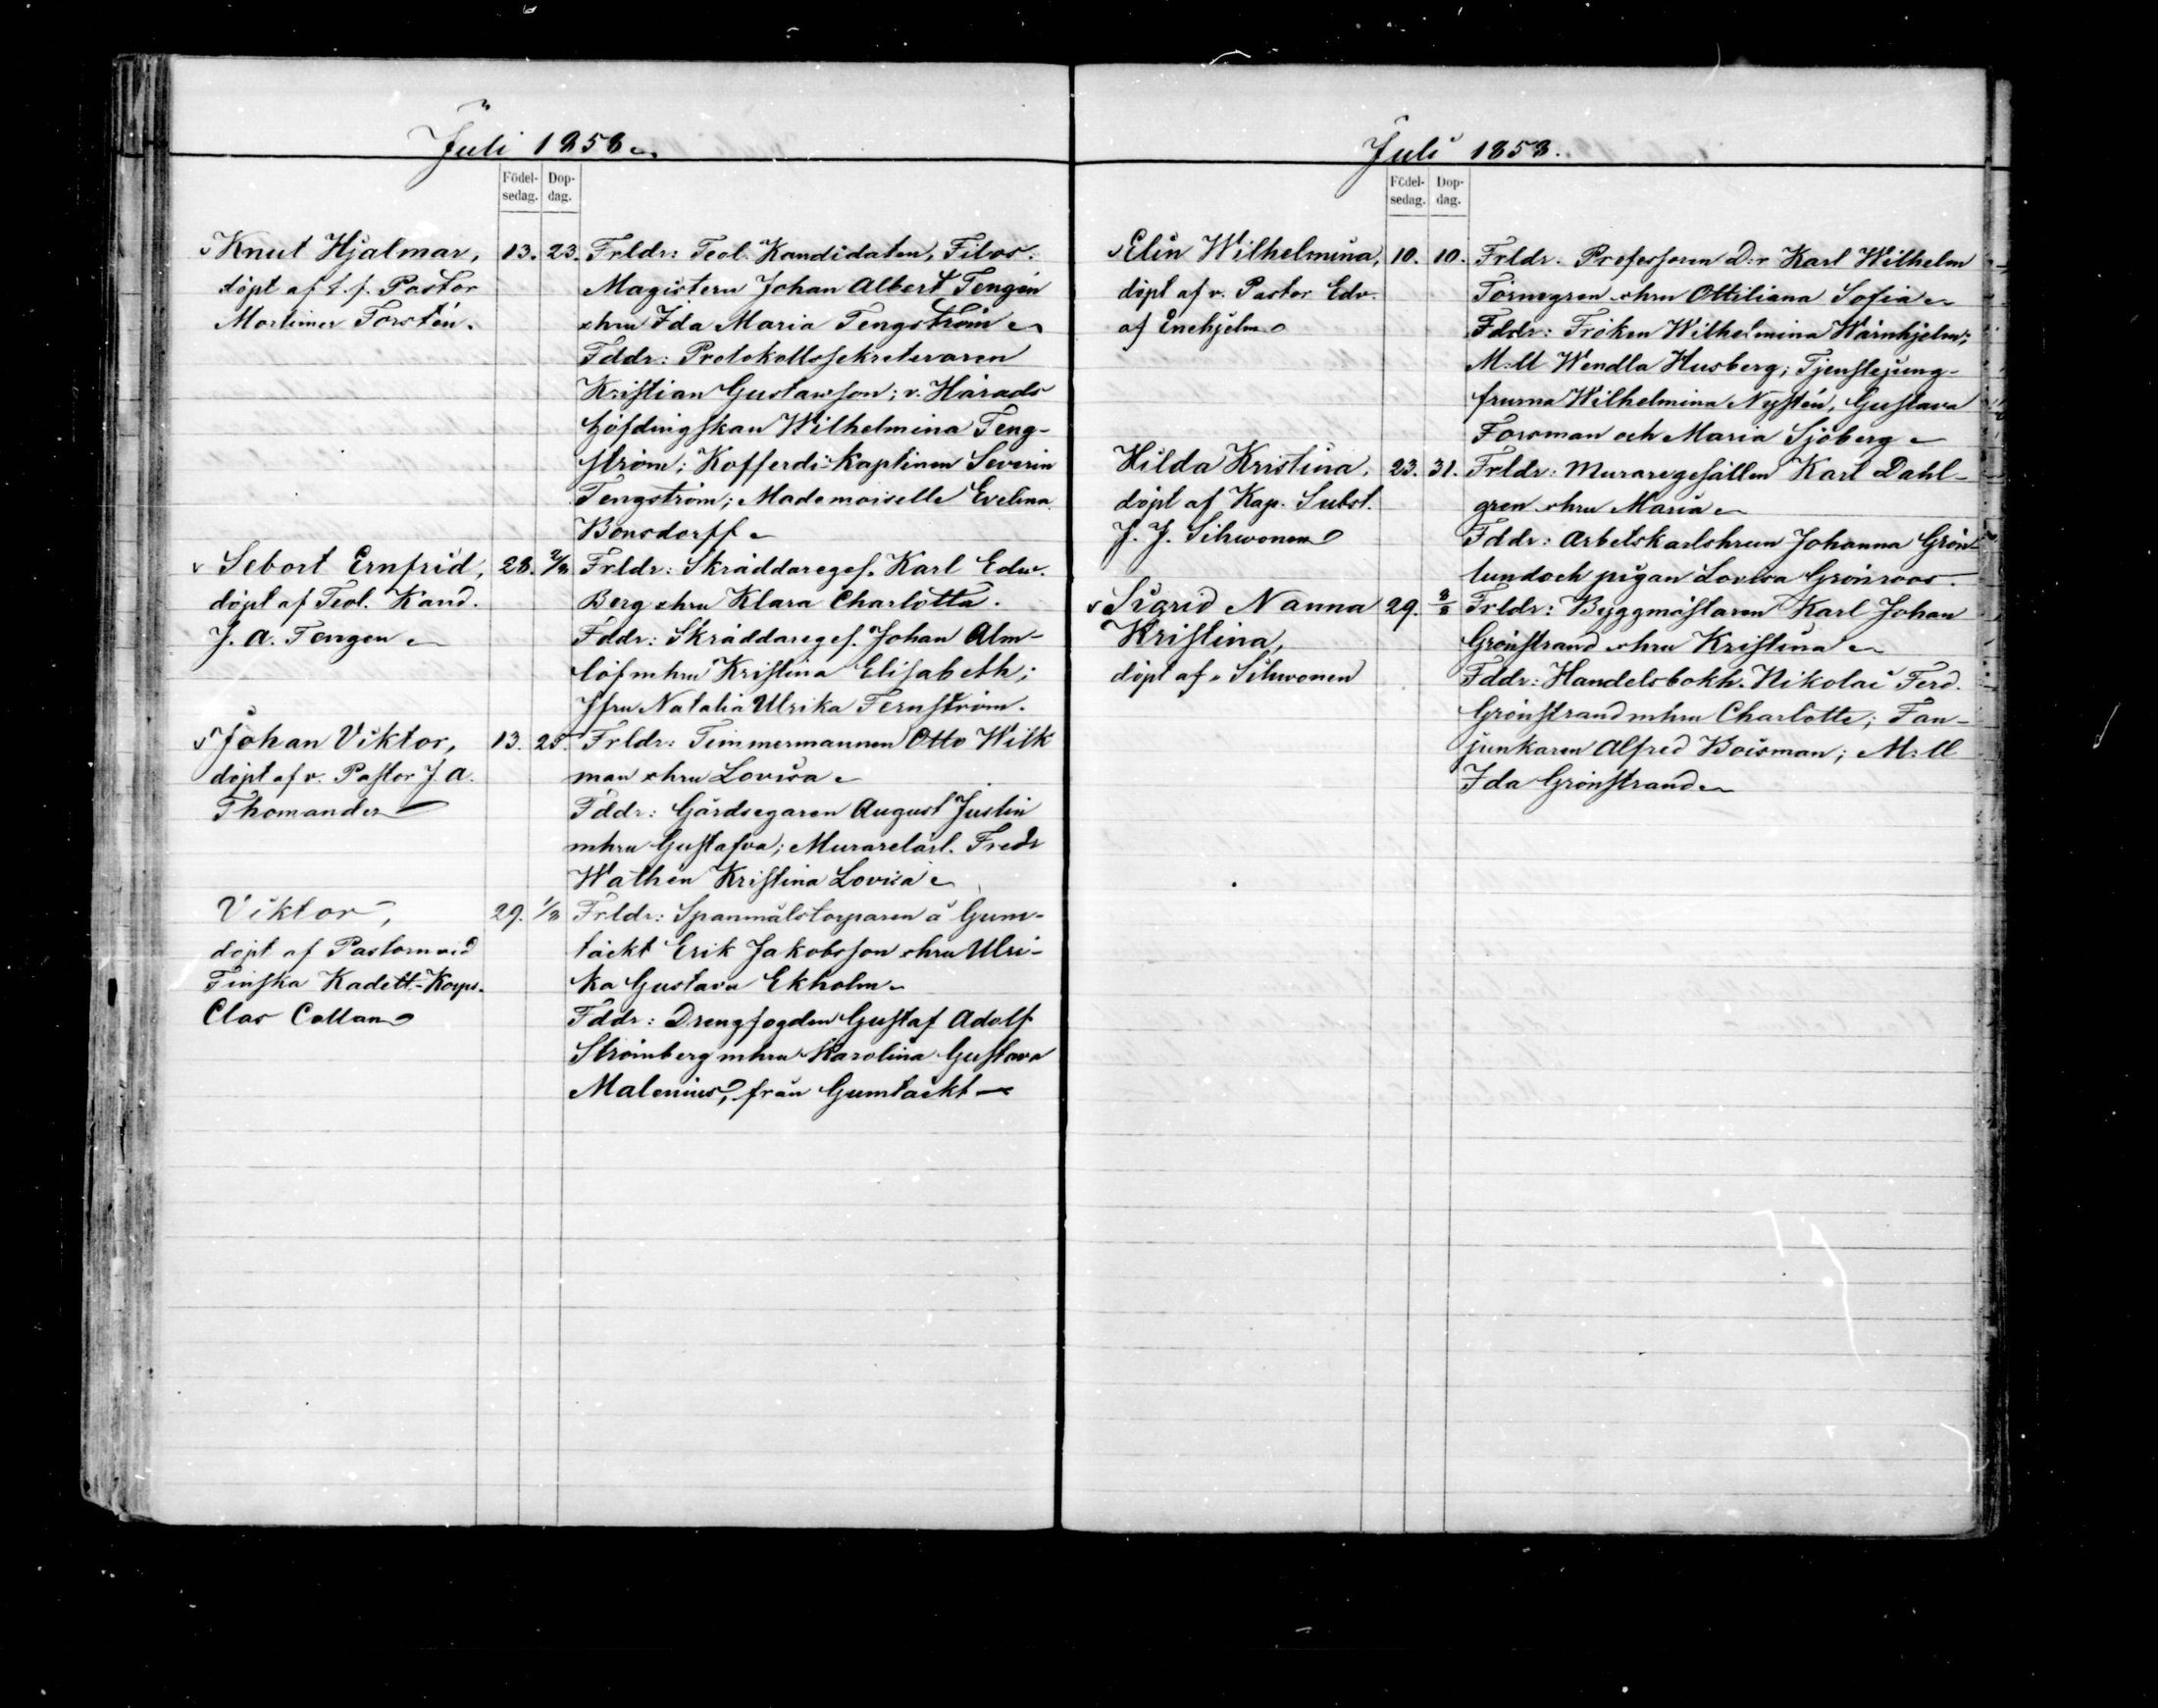 Juli 1858.
Födel-
sedag.
Dop-
dag.
Knut Hjalmar,
döpt af t.f. Pastor
Mortimer Forstén.
13. 23.
Frldr: Teol. Kandidaten, Filos.
Magistern Johan Albert Tengén
o hru Ida Maria Tengström
Fddr: Protokollssekreteraren
Kristian Gustawson; v. Härads
höfdingskan Wilhelmina Teng-
ström; Kofferdi-Kaptenen Severin
Tengström; Mademoiselle Evelina
Bonsdorff
v Sebort Ernfrid,
döpt af Teol. Kand.
J. A. Tengen
28. 2/8
Frldr: Skräddareges. Karl Edw.
Berg o hru Klara Charlotta.
Fddr: Skräddareges. Johan Alm-
löf m hru Kristina Elisabeth;
Jfru Natalia Ulrika Fernström.
Johan Viktor,
döpt af v. Pastor J. A.
Thomander
13. 25.
Frldr: Timmermannen Otto Wilk
man o hru Lovisa
Fddr: Gårdsegaren August Justin
m hru Gustafva; Murarelärl. Fredr
Wathen Kristina Lovisa
Viktor,
döpt af Pastorn vid
Finska Kadett-Korps.
Clas Collan
29. 1/8
Frldr: Spanmålstorparen å Gum-
täckt Erik Jakobsson o hru Ulri-
ka Gustava Ekholm
Fddr: Drengfogden Gustaf Adolf
Strömberg m hru Karolina Gustava
Malenius, från Gumtäckt
Juli 1858.
Födel-
sedag.
Dop-
dag.
v Elin Wilhelmina,
döpt af v. Pastor Edv.
af Enehjelm
10. 10.
Frldr: Professoren D:r Karl Wilhelm
Törnegren o hru Ottiliana Sofia
Fddr: Fröken Wilhelmina Wärnhjelm;
M:ll Wendla Husberg; Tjenstejung-
frurna Wilhelmina Nystén, Gustava
Forsman och Maria Sjöberg
Hilda Kristina,
döpt af Kap. Subst.
J. J. Sihwonen
23. 31.
Frldr: Muraregesällen Karl Dahl-
gren o hru Maria
Fddr: Arbetskarlshrun Johanna Grön-
lund och pigan Lovisa Grönroos.
v Sigrid Nanna
Kristina,
döpt af " Sihwonen
29. 8/8
Frldr: Byggmästaren Karl Johan
Grönstrand o hru Kristina
Fddr: Handelsbokh. Nikolai Ferd.
Grönstrand m hru Charlotte; Fan-
junkaren Alfred Boisman; M:ll
Ida Grönstrand